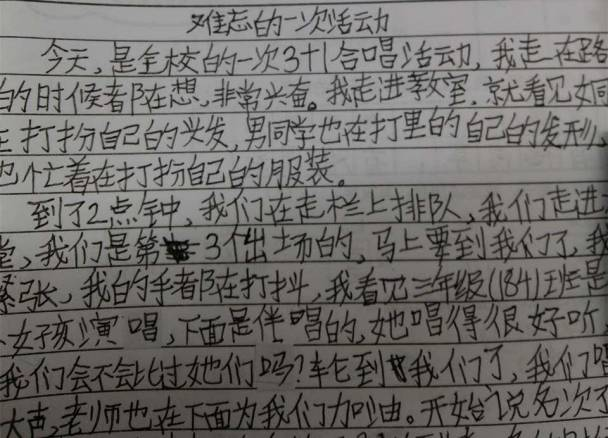 难忘的一次活动
今天,是全校的一次3十1合唱活动,我走在路
的时候都在想,非常兴奋。我走进教室,就看见女同
在打扮自己的头发,男同学也在打里的自己的发形,
也忙着在打扮自己的服装。
到了2点钟,我们在走栏上排队,我们走进
堂,我们是第3个出场的,马上要到我们了,我
紧张,我的手都在打抖,我看见三年级(184)班是
个女孩演唱,下面是伴唱的,她唱得很好听,
我们会不会比过她们吗?轮到我们了,我们唱
大声,老师也在下面为我们加油。开始说名次了